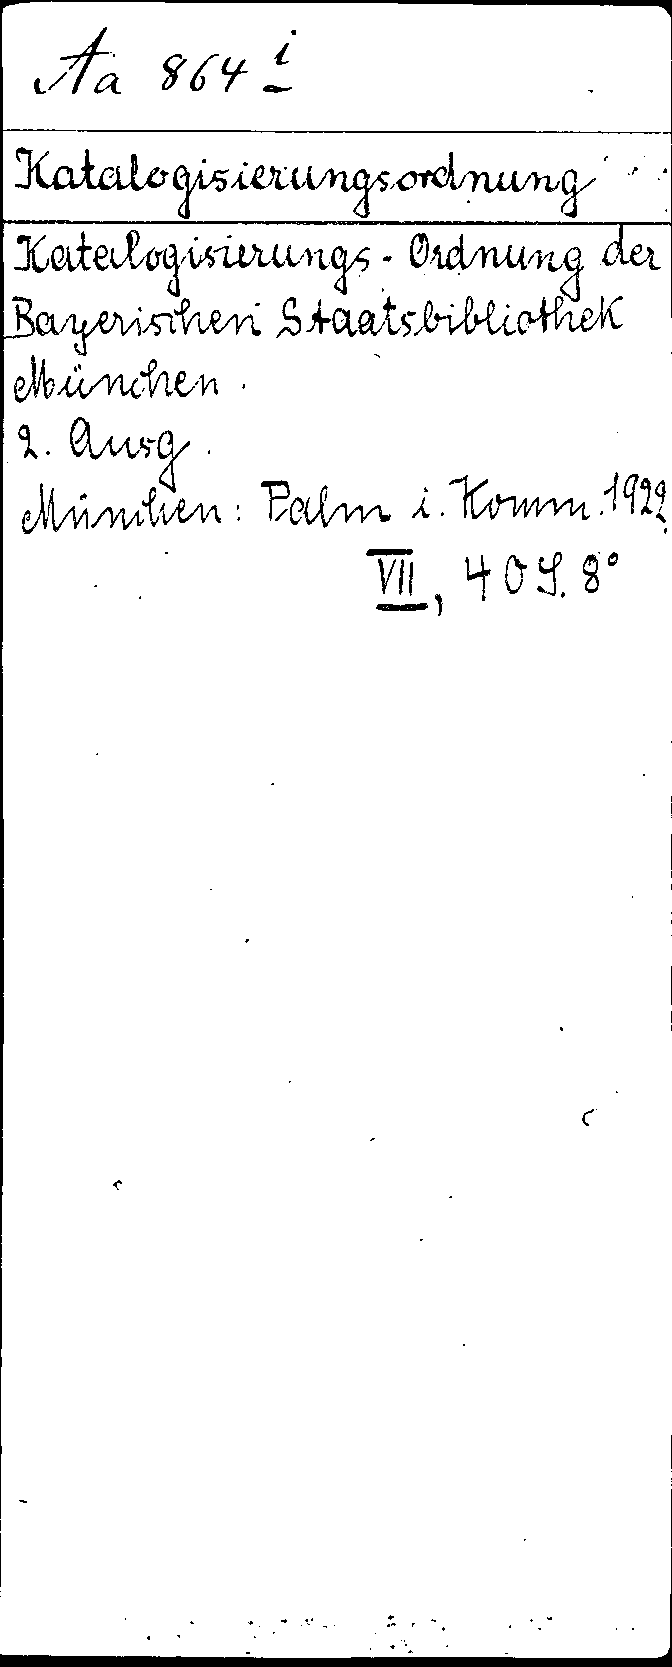 Aa 864 i
Katalogisierungsordnung
Katalogisierungs-Ordnung der
Bayerischen Staatsbibliothek
München.
2. Ausg.
München: Palm i. Komm. 1922.
VII, 40 S. 8°